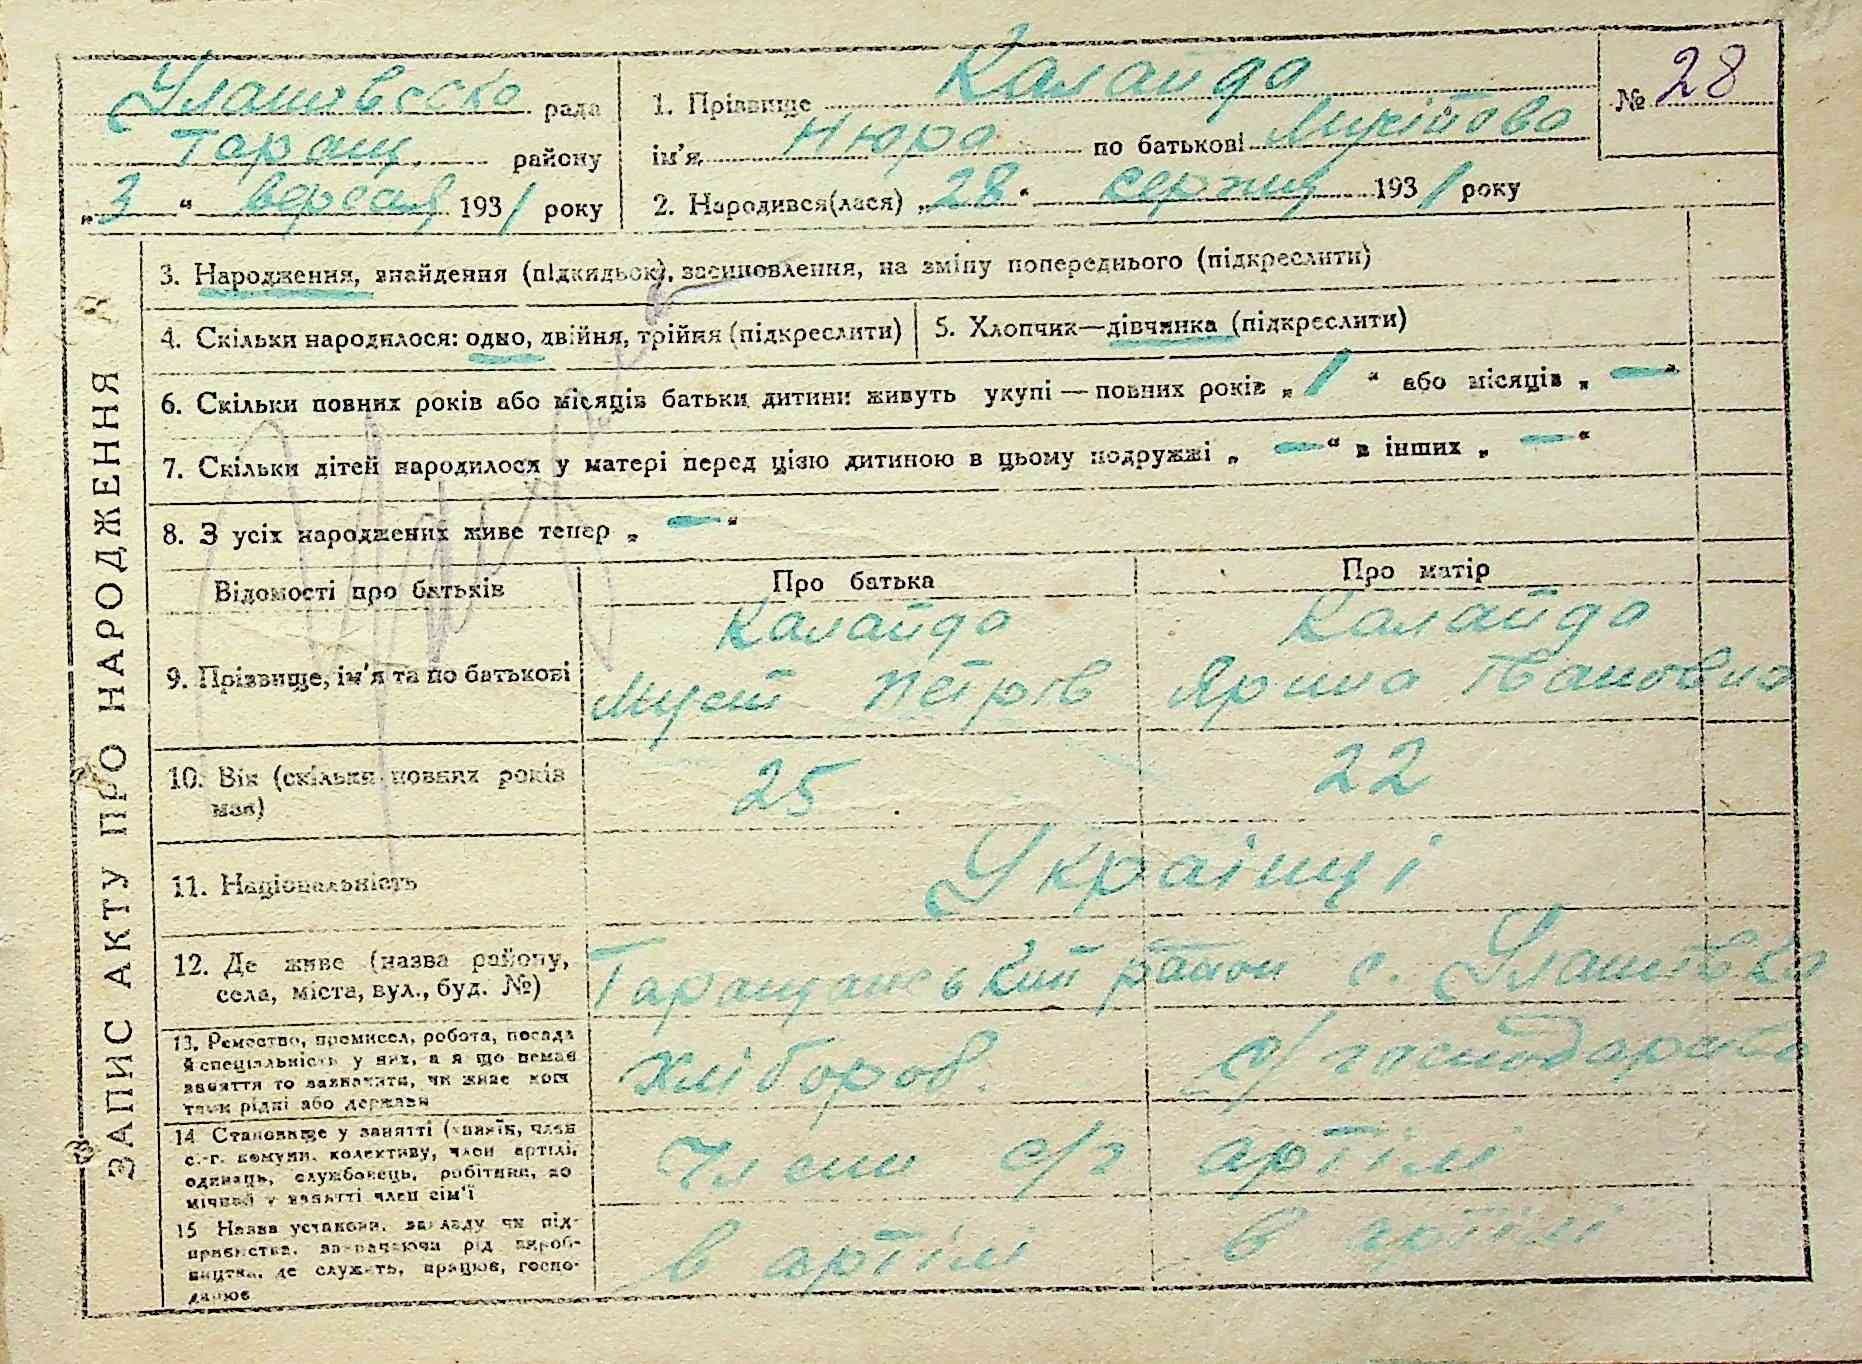 Улашовсска рада
Таращ. району
„3“ вересня 1931 року
1. Прізвище Калайда
ім'я Нюра по батькові
2. Народився(лася) „28“ серпня 1931 року
№ 28
ЗАПИС АКТУ ПРО НАРОДЖЕННЯ
3. Народження, знайдення (підкидьок), засиновлення, на зміну попереднього (підкреслити)
4. Скільки народилося: одно, двійня, трійня (підкреслити)
5. Хлопчик—дівчинка (підкреслити)
6. Скільки повних років або місяців батьки дитини живуть укупі — повних років „1“ або місяців „—“
7. Скільки дітей народилося у матері перед цією дитиною в цьому подружжі „—“ в інших „—“
8. З усіх народжених живе тепер „—“
Відомості про батьків
Про батька
Про матір
9. Прізвище, ім'я та по батькові
Калайда
Мусій Петрів
Калайда
Ярина Івановна
10. Вік (скільки повних років
має)
25
22
11. Національність
Українці
12. Де живе (назва району,
села, міста, вул., буд. №)
Таращанський район с. Улашівка
13. Ремество, промисел, робота, посада
й спеціальність у них, а я що немає
заняття то зазначити, чи живе кош
тами рідні або держави
хлібороб.
с/господарство
14 Становище у занятті (хазяїн, член
с.-г. комуни, колективу, член артілі,
одинаць, службовець, робітник, до
мічний у занятті член сім'ї
Члени с/г артілі
15 Назва установи, закладу чи під-
приємства, зазначаючи рід вироб-
ництва, де служить, працює, госпо-
дарює
в артілі
в артілі